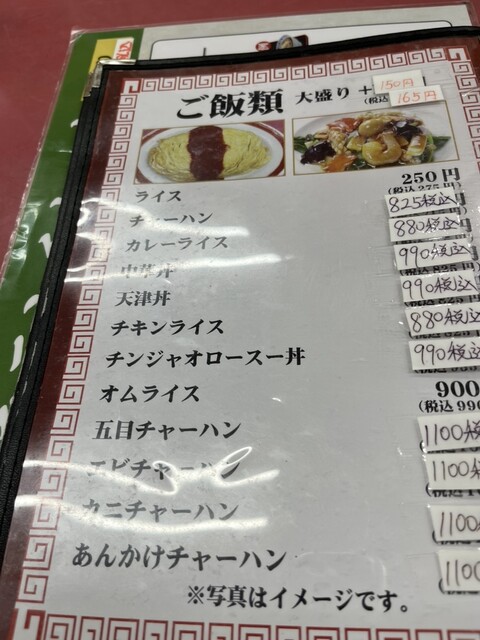 ご飯類 大盛り + 150円
(税込 165円
ライス 250円
(税込 275円
チャーハン 825税込
カレーライス 880税込
中華丼 990税込
天津丼 990税込
チキンライス 880税込
チンジャオロースー丼 990税込
オムライス 900
(税込 990
五目チャーハン 1100税
エビチャーハン 1100税
カニチャーハン 1100
あんかけチャーハン 1100
※写真はイメージです。